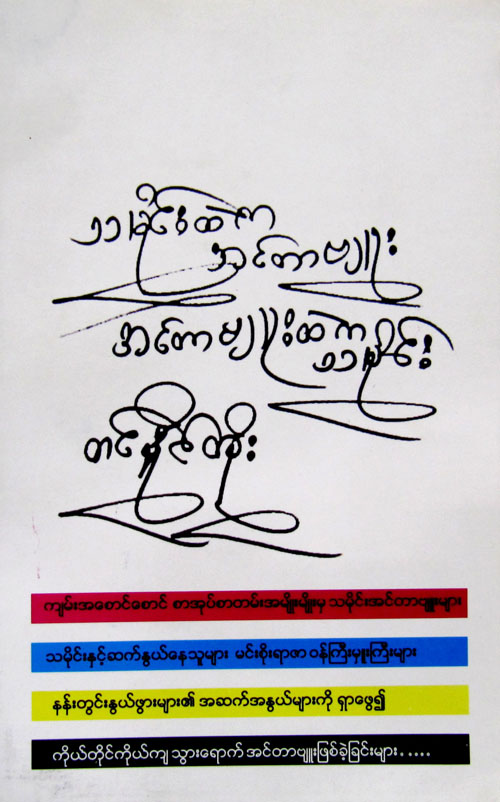 သမိုင်းထဲက
အင်တာဗျူး
အင်တာဗျူးထဲက
သမိုင်း
တင်နိုင်တိုး
ကျမ်းအစောင်စောင် စာအုပ်စာတမ်းအမျိုးမျိုးမှ သမိုင်းအင်တာဗျူးများ
သမိုင်းနှင့်ဆက်နွယ်နေသူများ မင်းစိုးရာဇာ ဝန်ကြီးမှူးကြီးများ
နန်းတွင်းနွယ်ဖွားများ၏ အဆက်အနွယ်များကို ရှာဖွေ၍
ကိုယ်တိုင်ကိုယ်ကျ သွားရောက် အင်တာဗျူးဖြစ်ခဲ့ခြင်းများ.....